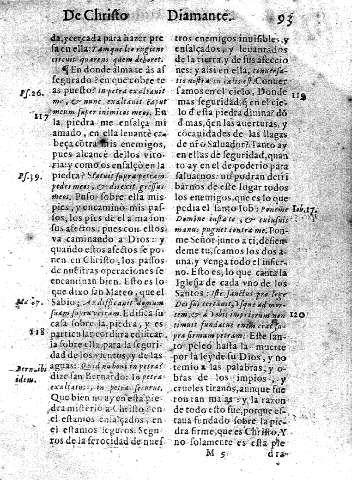 De Christo Diamante. 93
da, y cercada para hazer pre
sa en ella: Tamquam leo rugiens
circuit quærens quem devoret.
¶ En donde alma te as as
segurado? en que cobre te
Ps. 26. as puesto? in petra exaltauit
me, & nunc exaltauit caput
meum super inimicos meos, En
117 la piedra me ensalça mi
amado, en ella leuanté ca
beça contra mis enemigos,
pues alcancè dellos vito-
ria: y como os ensalçò en la
Ps. 39. piedra? Statuit supra petram
pedes meos, & direxit gressus
meos. Puso sobre ella mis
pies, y encamino mis pa-
sos, los pies de el alma son
sus afectos, pues con ellos
va caminando a Dios: y
quando estos afectos se po
nen en Christo, los pasos
de nuestras operaciones se
encaminan bien. Esto es lo
que dixo san Mateo, que el
Mat. 7. Sabio: Ædificauit domum
suam supra petram. Edifica su
118 casa sobre la piedra, y es
particular cordura edificar
la sobre ella para la seguri-
dad de los vientos, y de las
aguas: Quid no boni in petra?
Bern. ibi dize san Bernardo: In petra
idem. exaltatus, in petra securus.
Que bien no ay en esta pie
dra misterio a Christo? en
el estamos ensalçados, en
el estamos seguros. Segu-
ros de la ferocidad de nues
tros enemigos inuisibles, y
ensalçados, y leuantados
de la tierra, y de sus afeccio
nes: y asi en ella, conuersa-
tio nostra in cælis est. Conuer
samos en el cielo. Donde
119 mas seguridad, q̃ en el cie-
lo d'esta piedra diuina? dõ
d'mas, q̃ en las auerturas, y
cocauidades de las llagas
de n̄ro Saluador? Tanto ay
en ellas de seguridad, quan
to ay en el de poderio para
saluarnos: no podran derri
barnos de este lugar todos
los enemigos, que es lo que
pedia el santo Iob: Pone me Iob. 17.
Domine iuxta te, & cuiusuis
manus pugnet contra me. Pon-
me Señor junto a ti, defien
deme tu, seamos los dos a
vna, y venga todo el infier
no. Esto es, lo que canta la
Iglesia de cada vno de los
Santos: Iste sanctus pro lege
Dei sui certauit, vsque ad mor-
120 tem, & a verbis impiorum non
timuit fundatus enim erat su-
pra firmam petram: Este san-
to peleò hasta la muerte
por la ley de su Dios, y no
temio a las palabras, y o-
bras de los impios, y
crueles tiranos, aunque fue
ron tan malas: y la razon
de todo esto fue, porque es-
taua fundado sobre la pie-
dra firme, que es Christo. Y
no solamente es esta pie
M 5 dra-